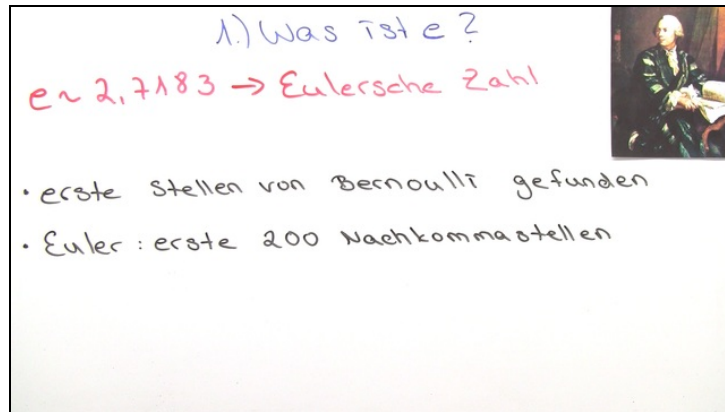 1.) Was ist e?
e ~ 2,7183 → Eulersche Zahl
• erste Stellen von Bernoulli gefunden
• Euler: erste 200 Nachkommastellen